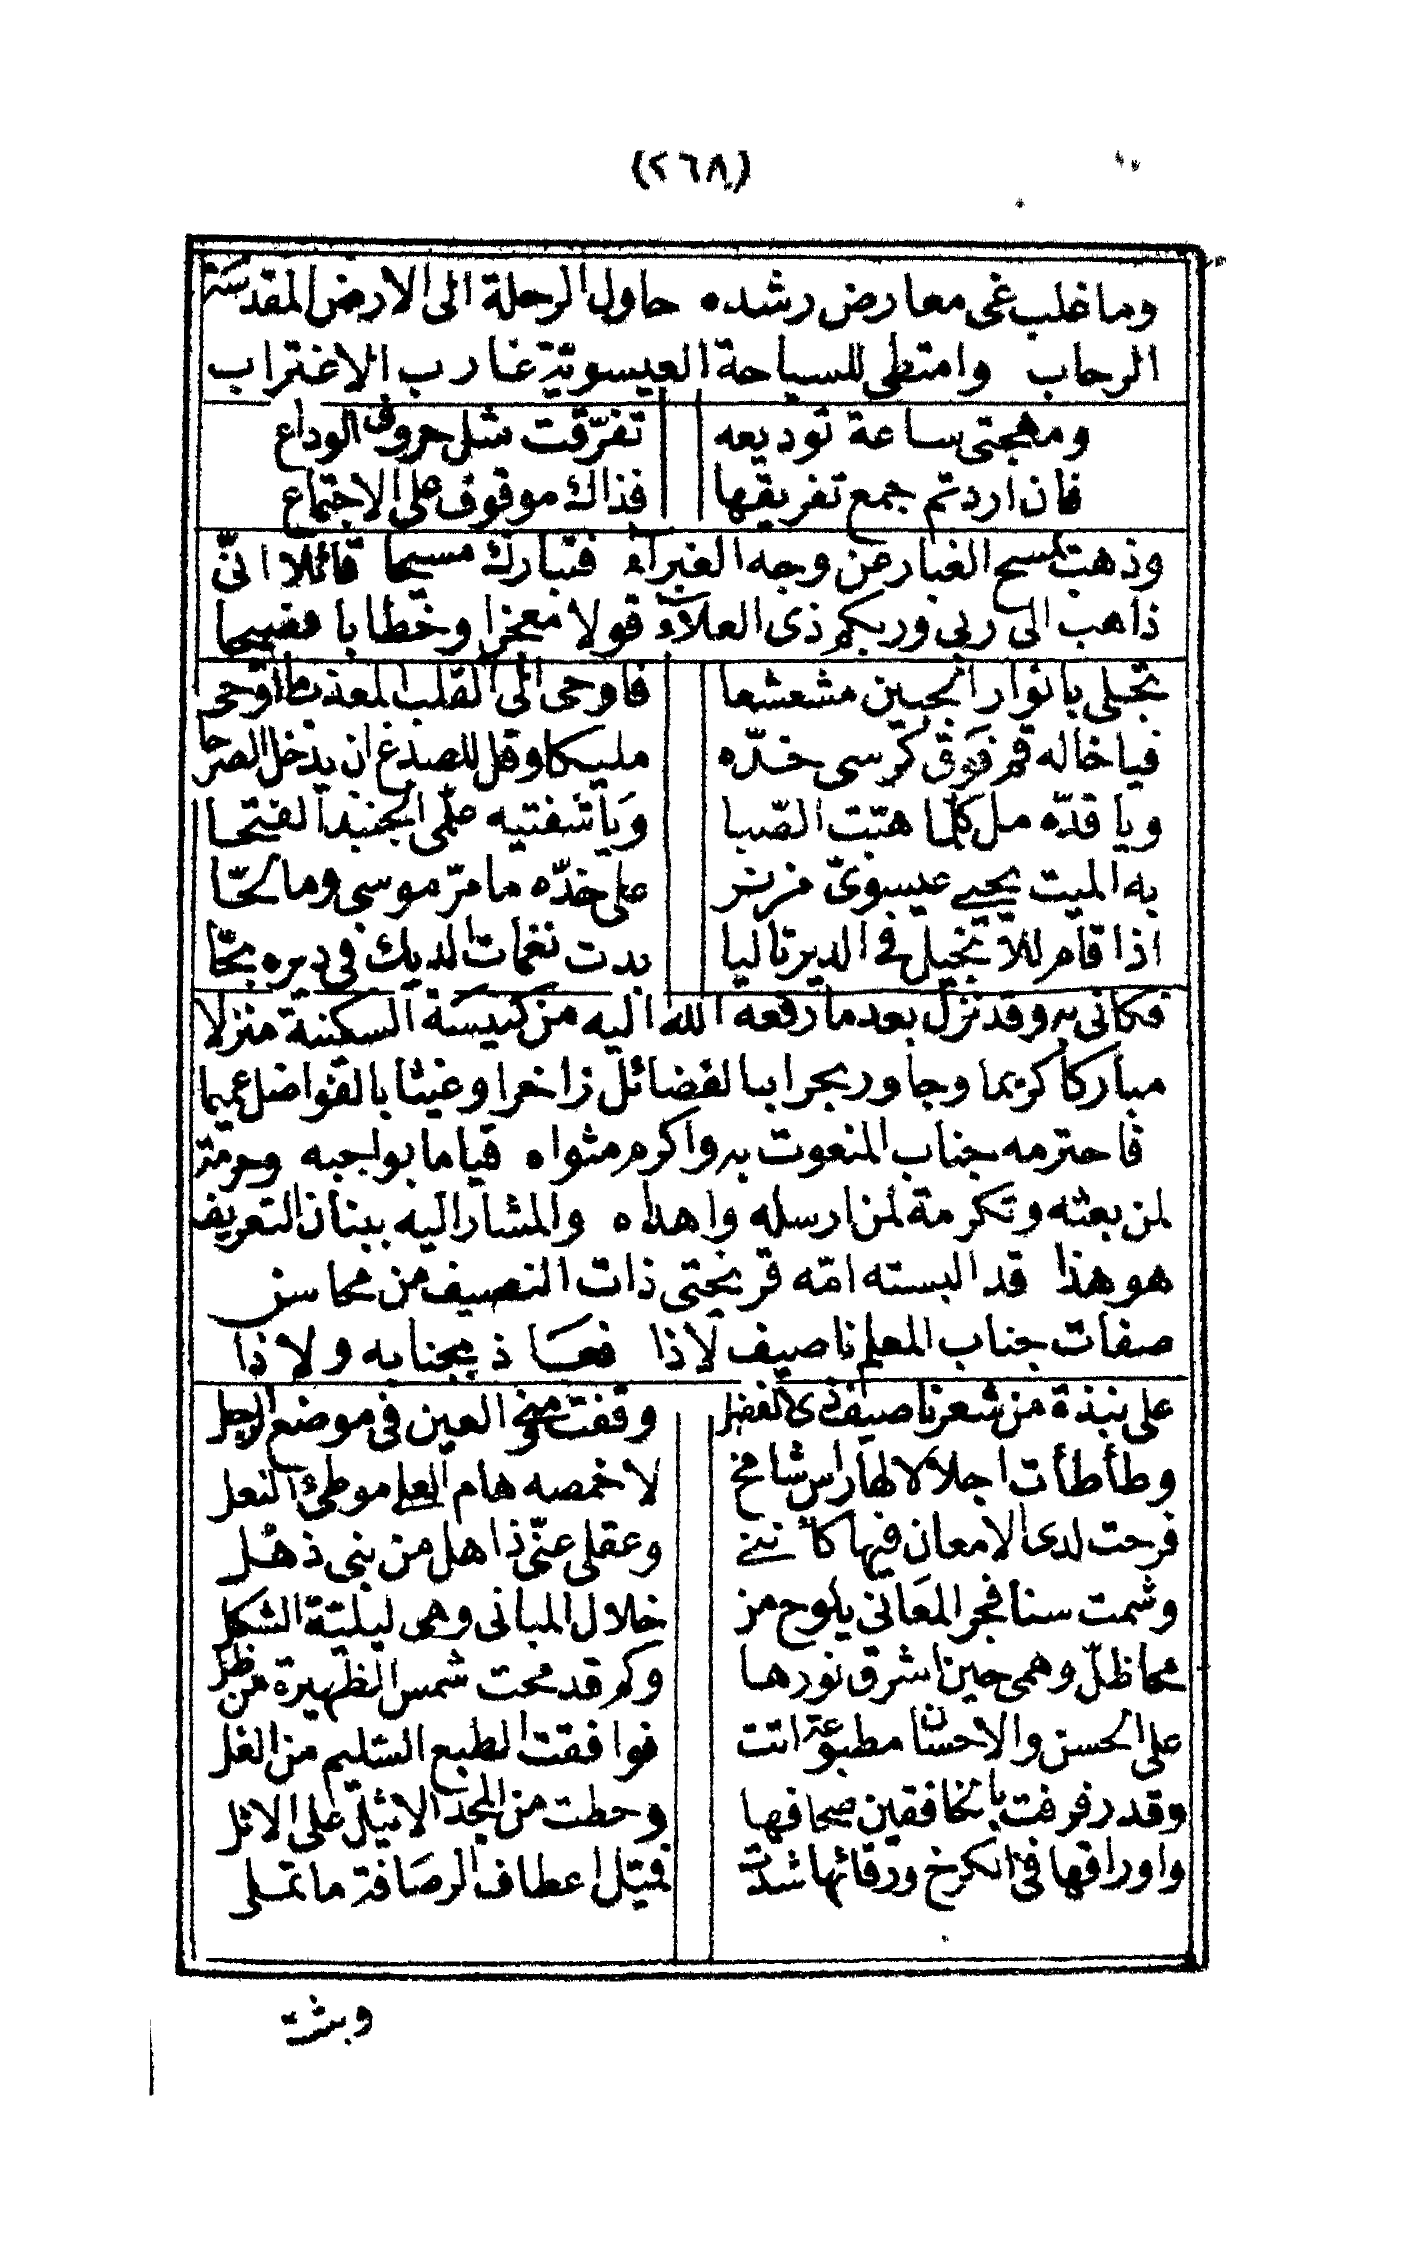 (٢٦٨)
وما غلب غى معارض رشده حاول الرحلة الى الارض المقدسة
الرحاب وامتطى للسياحة العيسوية غارب الاغتراب
ومهجتى ساعة توديعه تفرّقت مثل حروف الوداع
فان اردتم جمع تفريقها فذاك موقوف على الاجتماع
وذهت لمسح الغبار عن وجه الغبراء فتبارك مسيحا قائلا انّى
ذاهب الى ربى وربكم ذى العلاء قولا معجزا وخطابا فصيحا
تجلى بانوار الجبين مشعشعا فاوحى الى القلب المعذب ما اوحى
فيا خاله قم فوق كرسى خدّه مليكا وقل للصدغ ان يدخل الصرحا
ويا قدّه مل كلما هبّت الصّبا وَيا شفتيه علّمى الجنبد الفتحا
به الميت يحيى عيسوىّ على خدّه ما مرّ موسى وما لحّا
اذا قام للانجيل فى الدير تاليا بدت نغمات الديك فى ديره بحّا
فكانى به وقد نزل بعد ما رفعه الله اليه من كنيسة السكينة منزلا
مباركا كريما وجاور بحرا بالفضائل زاخرا وغيثا بالفواضل عميما
فاحترمه جناب المنعوت به واكرم مثواه قياما بواجبه وحرمة
لمن بعثه وتكرمة لمن ارسله واهداه والمشار اليه ببنان التعريف
هو هذا قد البسته امّه قريحتى ذات النصيف من محاسن
صفات جناب المعلم ناصيف لاذا فعاذ بجنابه ولاذا
على نبذة من شعر ناصيف ذى الفضل وقفت العين فى موضع الرجل
وطأطأت اجلالا لها راس شامخ لاخمصه هام العلى موطئ النعل
فرحت لدى الامعان فيها كأننى وعقلى عنّى ذاهل من بنى ذهل
وشمت سنا فجر المعَانى يلوح من خلال المبانى وهى ليلية الشكل
محا ظلّ وهمى حين اشرق نورها وكم قد محت شمس الظهيرة من ظل
على الحسن والاحسان مطبوعة اتت فوافقت الطبع السّليم من الغل
وقد رفرفت بالخافقين صحافها وحطت من المجد الاثيل على الاثل
واوراقها فى الكرخ ورقائها شدت تميل اعطاف الرصَافة ما تملى
وبثت